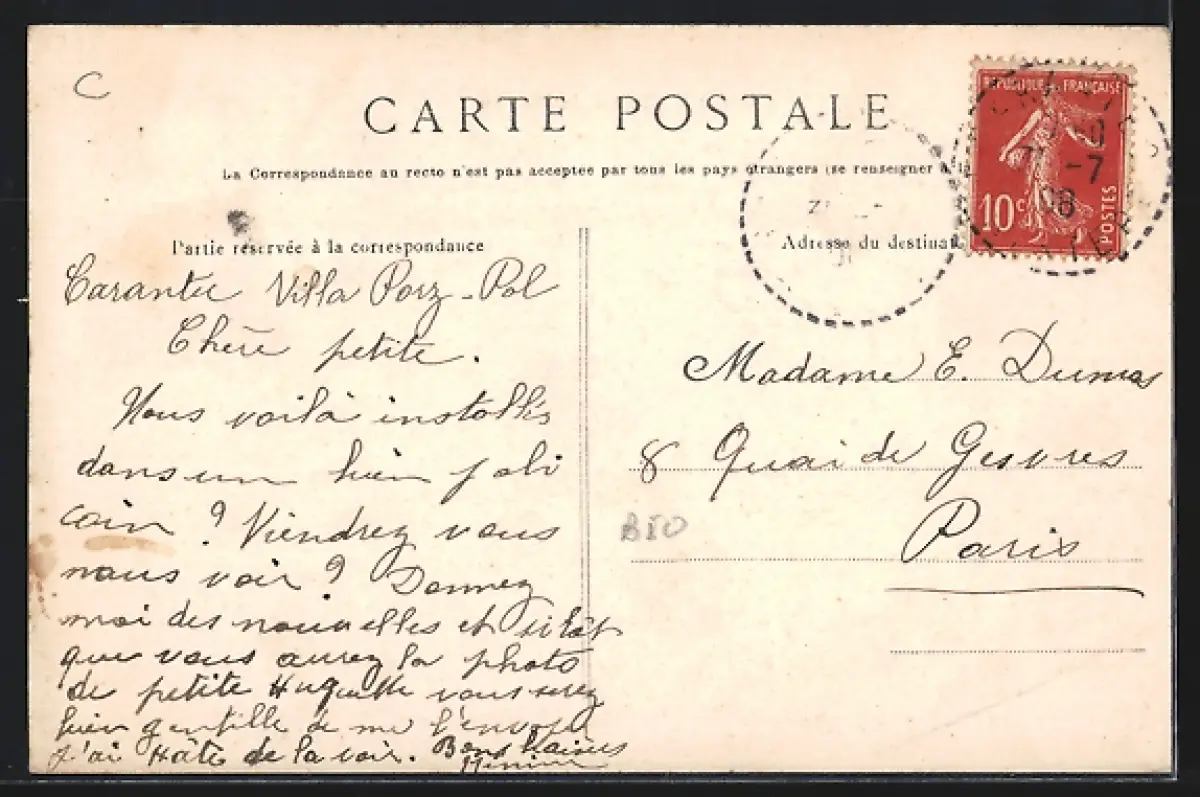 C
CARTE POSTALE
La Correspondance au recto n'est pas acceptee par tous les pays etrangers (se renseigner à la
REPUBLIQUE FRANÇAISE
10c
POSTES
-7
08
Partie réservée à la correspondance
Adresse du destinat
Carantec Villa Porz-Pol
Chère petite.
Nous voilà installés
dans un bien joli
coin ? Viendrez vous
nous voir ? Donnez
moi des nouvelles et sitôt
que vous aurez la photo
de petite Huguette vous serez
bien gentille de me l'envoyer
J'ai Hâte de la voir. Bons baisers
Madame E. Dumas
8 Quai de Gesvres
Paris